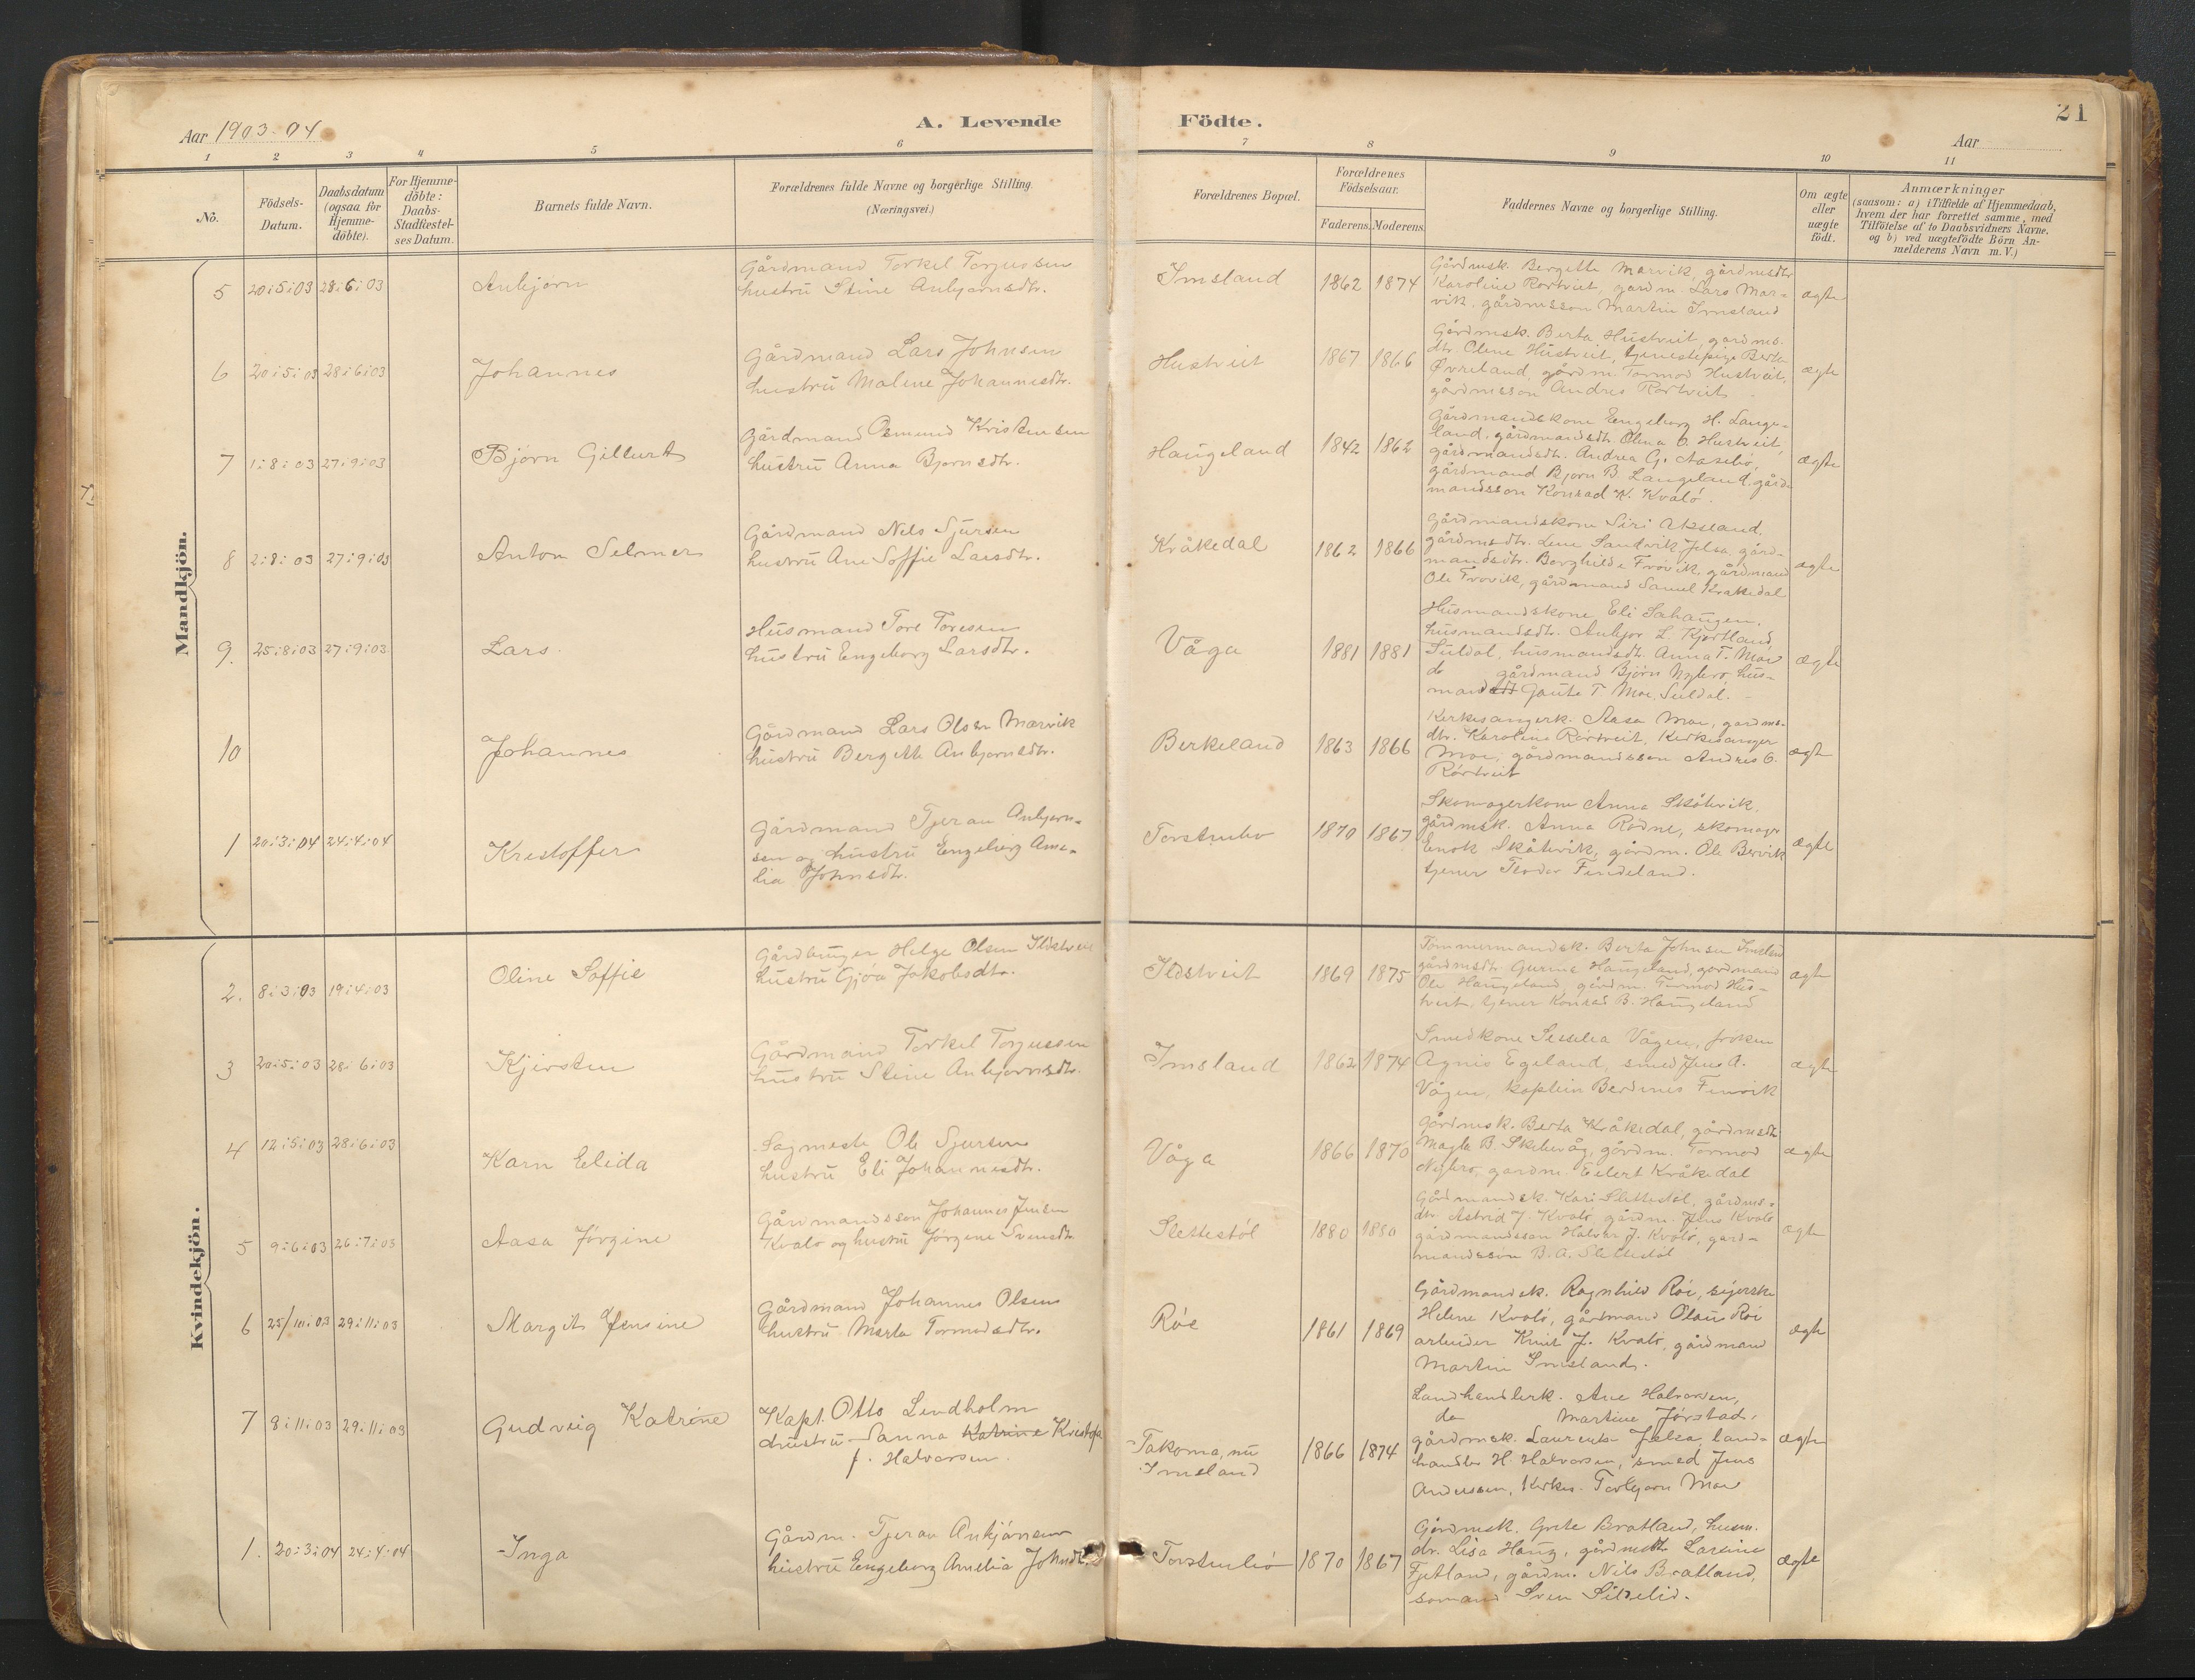 21
Aar 1903-04
A. Levende Födte.
Aar
1 2 3 4 5 6 7 8 9 10 11
No.
Födsels-
Datum.
Daabsdatum
(ogsaa for
Hjemme-
döbte).
For Hjemme-
döbte:
Daabs-
Stadfæstel-
ses Datum.
Barnets fulde Navn.
Forældrenes fulde Navne og borgerlige Stilling
(Næringsvei.)
Forældrenes Bopæl.
Forældrenes
Födselsaar.
Faderens. Moderens.
Faddernes Navne og borgerlige Stilling.
Om ægte
eller
uægte
födt.
Anmærkninger
(saasom: a) i Tilfælde af Hjemmedaab,
hvem der har forrettet samme, med
Tilföielse af to Daabsvidners Navne,
og b) ved uægtefödte Börn An-
melderens Navn m.V.)
Mandkjön.
5 20:5:03 28:6:03 Anbjørn
Gårdmand Torkel Torjussen
hustru Stine Anbjørnsdtr.
Imsland 1862 1874
Gårdmsk. Bergette Marvik, gårdmsdtr
Karoline Rørtveit, gårdm. Lars Mar-
vik, gårdmsson Martin Imsland
ægte
6 20:5:03 28:6:03 Johannes
Gårdmand Lars Johnsen
hustru Malene Johannesdtr.
Hustveit 1867 1866
Gårdmsk. Berta Hustveit, gårdms.
dtr. Olene Hustveit, tjenestepige Berta
Øvreland, gårdm. Tormod Hustveit,
gårdmsson Andres Rørtveit
ægte
7 1:8:03 27:9:03 Bjørn Gillert
Gårdmand Osmund Kristensen
hustru Anna Bjørnsdtr.
Haugeland 1842 1862
Gårdmandskone Engeborg H. Lange-
land, gårdmandsdtr. Olena O. Hustveit,
gårdmandsdtr. Andrea G. Aasebø,
gårdmand Bjørn B. Langeland, gård-
mandsson Konrad K. Kvalø.
ægte
8 2:8:03 27:9:03 Anton Selmer
Gårdmand Nels Sjursen
hustru Ane Soffie Larsdtr.
Kråkedal 1862 1866
Gårdmandskone Siri Akseland,
gårdmsdtr. Lene Sandvik Jelsa, gård-
mandsdtr. Borghilde Frøvik, gårdmand
Ole Frøvik, gårdmand Samel Kråkedal
ægte
9. 25:8:03 27:9:03 Lars.
Husmand Tore Toresen
hustru Engeborg Larsdtr.
Våga 1881 1881
Husmandskone Eli Sahaugen.
husmandsdtr. Anbjør L. Kjørtland,
Suldal, husmandsdtr. Anna T. Moe
do gårdmand Bjørn Nybrø, hus-
mand Gaute T Moe, Suldal.
ægte
10 Johannes
Gårdmand Lars Olsen Marvik
hustru Bergette Anbjørnsdtr.
Berkeland 1863 1866
Kerkesangerk. Aasa Moe, gårdms-
dtr. Karoline Rørtveit, Kerkesanger
Moe, gårdmandsson Andres O.
Rørtveit
ægte
1 20:3:04 24:4:04 Krestoffer
Gårdmand Tjeran Anbjørn-
sen og hustru Engeborg Ame-
lia Johnsdtr.
Torstenbø 1870 1867
Skomagerkone Anna Skåtevik,
gårdmsk. Anna Rødne, skomager
Enok Skåtevik, gårdm. Ole Bervik
tjener Teodor Findeland.
ægte
Kvindekjön.
2. 8:3:03 19:4:03 Oline Soffie
Gårdbruger Helge Olsen Ilstveit
hustru Gjøa Jakobsdtr.
Ilstveit 1869 1875
Tømmermandsk. Berta Johnsen Imsland
gårdmsdtr. Gurine Haugeland, gårdmand
Ole Haugeland, gårdm. Tormod Hus-
tveit, tjener Konrad B. Haugeland
ægte
3 20:5:03 28:6:03 Kjersten
Gårdmand Torkel Torjussen
hustru Stine Anbjørnsdtr.
Imsland 1862 1874
Smedkone Sesselia Vågen, frøken
Agnis Egeland, smed Jens A.
Vågen, kaptein Berdines Fenvik
ægte
4 12:5:03 28:6:03 Karn Elida
Sagmester Ole Sjursen
hustru Eli Johannesdtr.
Våga 1866 1870
Gårdmsk. Berta Kråkedal, gårdmsdtr
Magla B. Skeievåg, gårdm. Tormod
Nybrø, gårdm. Eilert Kråkedal
ægte
5 9:6:03 26:7:03 Aasa Jørgine
Gårdmandsson Johannes Jensen
Kvalø og hustru Jørgene Svensdtr
Slettestøl 1880 1880
Gårdmandsk. Kari Slettestøl, gårdms-
dtr. Astrid J. Kvalø, gårdm. Jens Kvalø
gårdmandsson Halvor J. Kvalø, gård-
mandsson B. A. Slettestøl
ægte
6 25/10:03 29:11:03 Margit Jensine
Gårdmand Johannes Olsen
hustru Marta Tormodsdtr.
Røe 1861 1869
Gårdmandsk. Ragnhild Røi, sejerske
Helene Kvalø, gårdmand Olau Røi
arbeider Knut J. Kvalø, gårdmand
Martin Imsland.
ægte
7 8:11:03 29:11:03 Gudveig Katrine
Kapt. Otto Lindholm
hustru Sanna Katrine Kristofa
f. Halvorsen.
Takoma, nu
Imsland
1866 1874
Landhandlerk. Ane Halvorsen,
do Martine Jørstad,
gårdmsk. Laurentse Jelsa, land-
handler H. Halvorsen, smed Jens
Anderssen, Kerkes. Torbjørn Moe
ægte
1. 20:3:04 24:4:04 Inga
Gårdm. Tjeran Anbjørnsen
hustru Engeborg Amelia Johnsdtr.
Torstenbø 1870 1867
Gårdmsk. Grete Bratland, husm.
dr. Lisa Haug, gårdmsdtr Larsine
Fjetland, gårdm. Nils Bratland,
sømand Sven
ægte